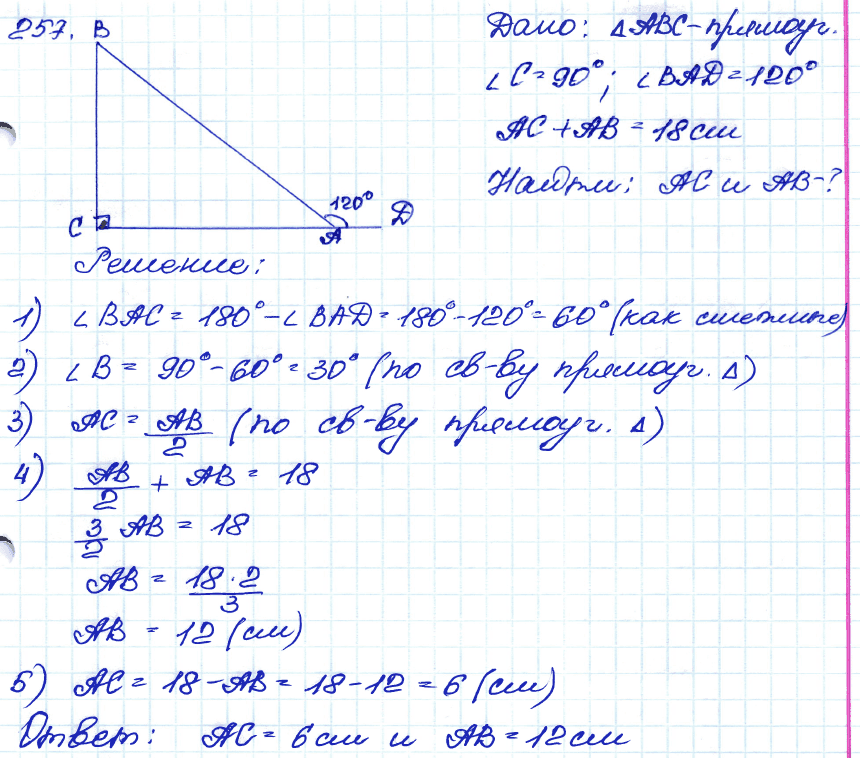 257.
B
C
A
120°
D
Дано: △ABC-прямоуг.
∠C=90°; ∠BAD=120°
AC+AB=18см
Найти: AC и AB-?
Решение:
1) ∠BAC=180°-∠BAD=180°-120°=60° (как смежные)
2) ∠B=90°-60°=30° (по св-ву прямоуг. △)
3) AC=AB/2 (по св-ву прямоуг. △)
4) AB/2 + AB = 18
3/2 AB = 18
AB = 18·2/3
AB = 12 (см)
5) AC=18-AB=18-12=6 (см)
Ответ: AC=6см и AB=12см